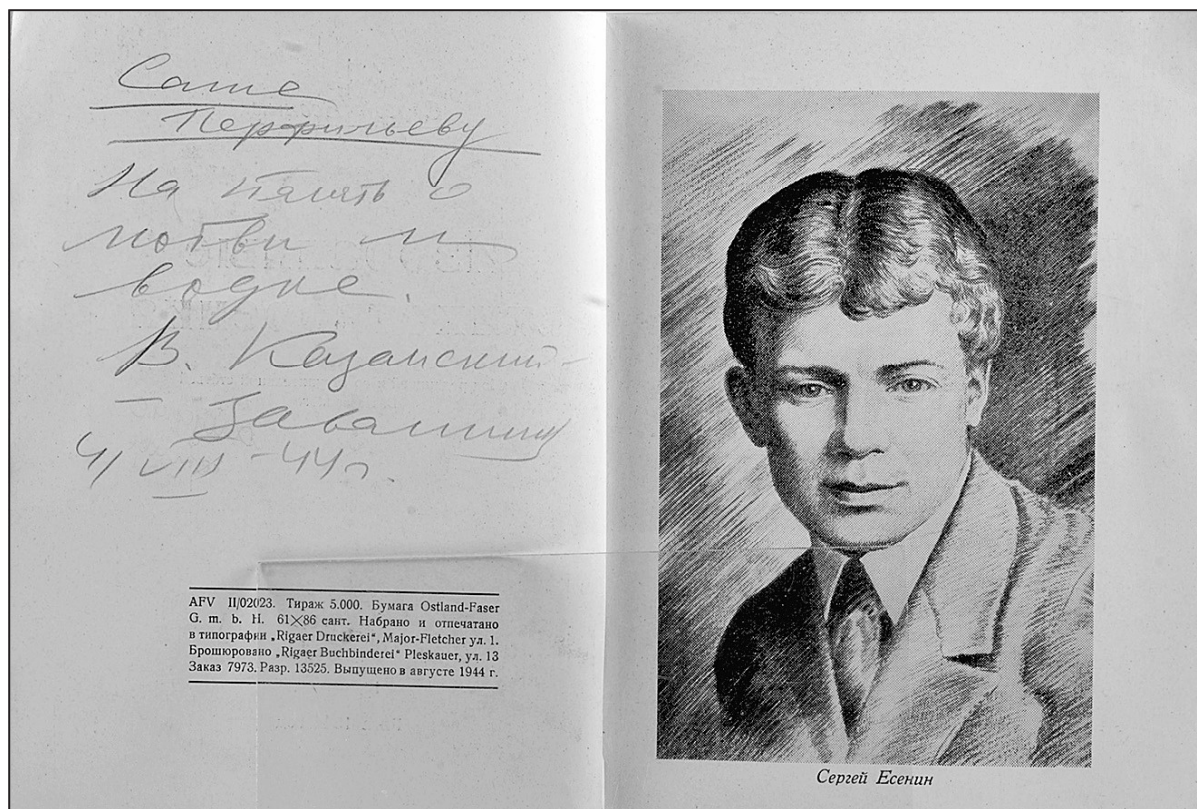 Саше
Перфильеву
На память о
любви и
водке.
В. Казанский-
- Завалишин
4/VIII-44 г.
AFV II/02023. Тираж 5.000. Бумага Ostland-Faser
G. m. b. H. 61×86 сант. Набрано и отпечатано
в типографии „Rigaer Druckerei“, Major-Fletcher ул. 1.
Брошюровано „Rigaer Buchbinderei“ Pleskauer, ул. 13
Заказ 7973. Разр. 13525. Выпущено в августе 1944 г.
Сергей Есенин